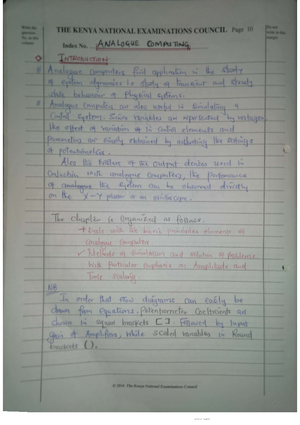 Write the question No. in this column
THE KENYA NATIONAL EXAMINATIONS COUNCIL Page 10
Do not write in this margin
Index No. ANALOGUE COMPUTING
INTRODUCTION
Analogue computers find application in the study
of system dynamics i.e study of transient and steady
state behaviour of Physical systems.
Analogue Computers are also useful in simulating a
Control System. Since variables are represented by voltages
the effect of variation of in Control elements and
parameters are easily obtained by adjusting the settings
of potentiometers.
Also the nature of the Output devices used in
Conjunction with analogue computers, the performance
of analogue the system can be observed directly
on the X-Y plotter or an oscilloscope.
The Chapter is Organized as follows.
Deals with the basic computing elements of
analogue computers
Methods of simulation and solution of problems
with particular emphasis on Amplitude and
Time scaling
NB
In order that flow diagrams can easily be
drawn from equations, Potentiometer Coefficients are
shown in square brackets [ ] followed by input
gain of Amplifiers, while scaled variables in round
brackets ( ).
The Kenya National Examinations Council